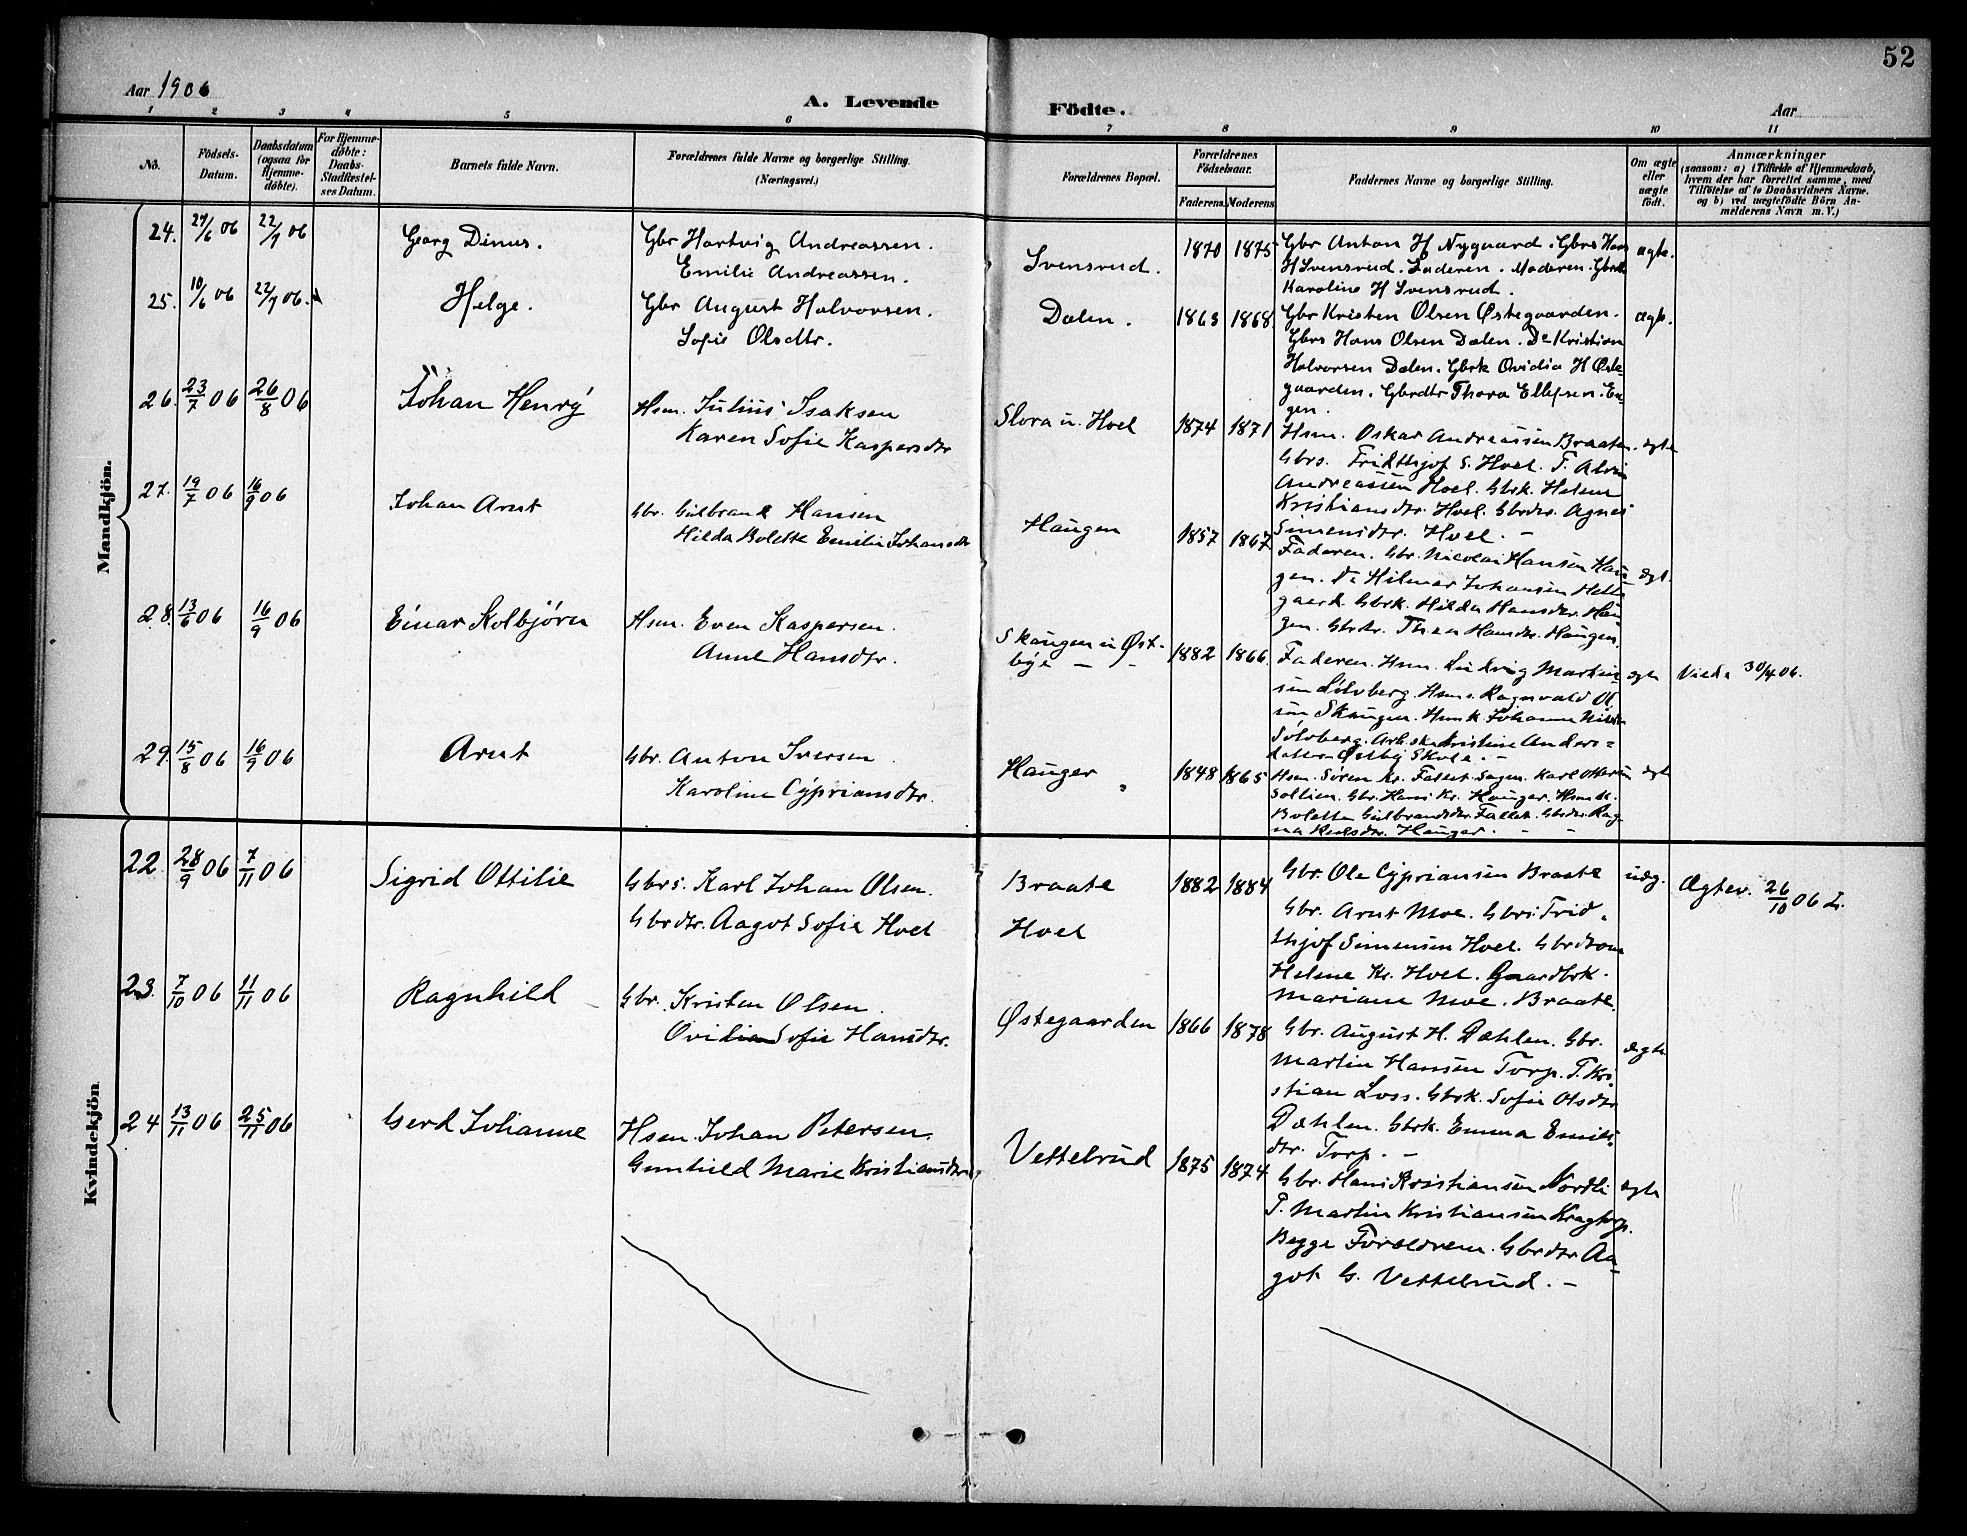 52
Aar 1906
A. Levende Födte.
Aar
1 2 3 4 5 6 7 8 9 10 11
No.
Födsels-Datum.
Daabsdatum (ogsaa for Hjemme-döbte).
For Hjemme-döbte: Daabs-Stadfæstel-ses Datum.
Barnets fulde Navn.
Forældrenes fulde Navne og borgerlige Stilling. (Næringsvei.)
Forældrenes Bopæl.
Forældrenes Födselsaar.
Faderens. Moderens.
Faddernes Navne og borgerlige Stilling.
Om ægte eller uægte födt.
Anmærkninger
(saasom: a) i Tilfælde af Hjemmedaab,
hvem der har forrettet samme, med
Tilföielse af to Daabsvidners Navne.
og b) ved uægtefödte Börn An-
melderens Navn m. V.)
Mandkjön.
24. 27/6 06 22/7 06 Georg Dinus. Gbr Hartvig Andreassen.
Emilie Andreassen.
Svensrud. 1870 1875 Gbr Anton H Nygaard. Gbrs Hans
H Svensrud. Faderen. Moderen. Gbrk
Karoline H Svensrud.
ægte.
25. 10/6 06 22/7 06. Helge. Gbr August Halvorsen.
Sofie Olsdtr.
Dælen. 1863 1868 Gbr Kristen Olsen Østegaarden.
Gbrs Hans Olsen Dælen. Do Kristian
Halvorsen Dælen. Gbrk Ovidia H Øste-
gaarden. Gbrdtr Thora Ellefsen En-
gen.
ægte.
26. 23/7 06 26/8 06 Johan Henry Hsm. Julius Isaksen
Karen Sofie Kaspersdtr
Slora u. Hoel 1874 1871 Hsm. Oskar Andreassen Braaten.
Gbrs. Fridthjof S. Hoel. T. Alvin
Andreassen Hoel. Gbrk. Helene
Kristiansdtr. Hoel. Gbrdtr. Agnes
Simensdtr. Hoel. –
ægte
27. 19/7 06 16/9 06 Johan Arnt Gbr. Gulbrand Hansen
Hilda Bolette Emilie Johansdtr
Haugen 1857 1867 Faderen. Gbr. Nicolai Hansen Hau-
gen. Do Hilmar Johansen Helle
gaard. Gbrk. Hilda Hansdtr. Hau
gen. Gbrdtr. Thea Hansdtr. Haugen.
ægt.
28. 13/6 06 16/9 06 Einar Kolbjörn Hsm. Even Kaspersen.
Anne Hansdtr.
Skaugen u Øst-
bye – – 1882 1866 Faderen. Hsm. Ludvig Martin
sen Sölvberg. Hsms. Ragnvald Ol
sen Skaugen. Hsmk. Johanne
Sölvberg. Arb.ske Kristine Anders-
datter Østby Skole. –
ægte Viede 30/4 06.
29. 15/8 06 16/9 06 Arnt Gbr. Anton Iversen
Karoline Cypriansdtr.
Hauger 1848 1865 Hsm. Sören Kr. Fallet. Sagm. Karl Ottersen
Sollien. Gbr. Hans Kr. Hauger. Hsmk.
Bolette Gulbrandsdtr. Fallet. Gbrdtr. Rag-
na Karlsdtr. Hauger. – –
ægte
Kvindekjön
22 28/9 06 7/11 06 Sigrid Ottilie Gbrs. Karl Johan Olsen.
Gbrdtr. Aagot Sofie Hoel
Braate
Hoel
1882 1884 Gbr. Ole Cypriansen Braate
Gbr. Arnt Moe. Gbrs. Frid-
thjof Simensen Hoel. Gbrdtr
Helene Kr. Hoel. Gaardbrk.
Mariane Moe. Braate.
uæg. Ægtev. 26/10 06 L.
23. 7/10 06 11/11 06 Ragnhild Gbr. Kristen Olsen.
Ovidia Sofie Hansdtr.
Østegaarden 1866 1878 Gbr. August H. Dæhlen. Gbr.
Martin Hansen Torp. T. Kri-
stian Loss. Gbrk. Sofie Olsdtr
Dæhlen. Gbrk. Emma Emils
dtr. Torp. –
ægte
24 13/11 06 25/11 06 Gerd Johanne Hsm. Johan Petersen.
Gunhild Marie Kristiansdtr.
Vettebrud 1875 1874 Gbr. Hans Kristiansen Nordli
T. Martin Kristiansen Kragtorp.
Begge Forældrene. Gbrdtr Aa-
got G. Vettebrud. –
ægte